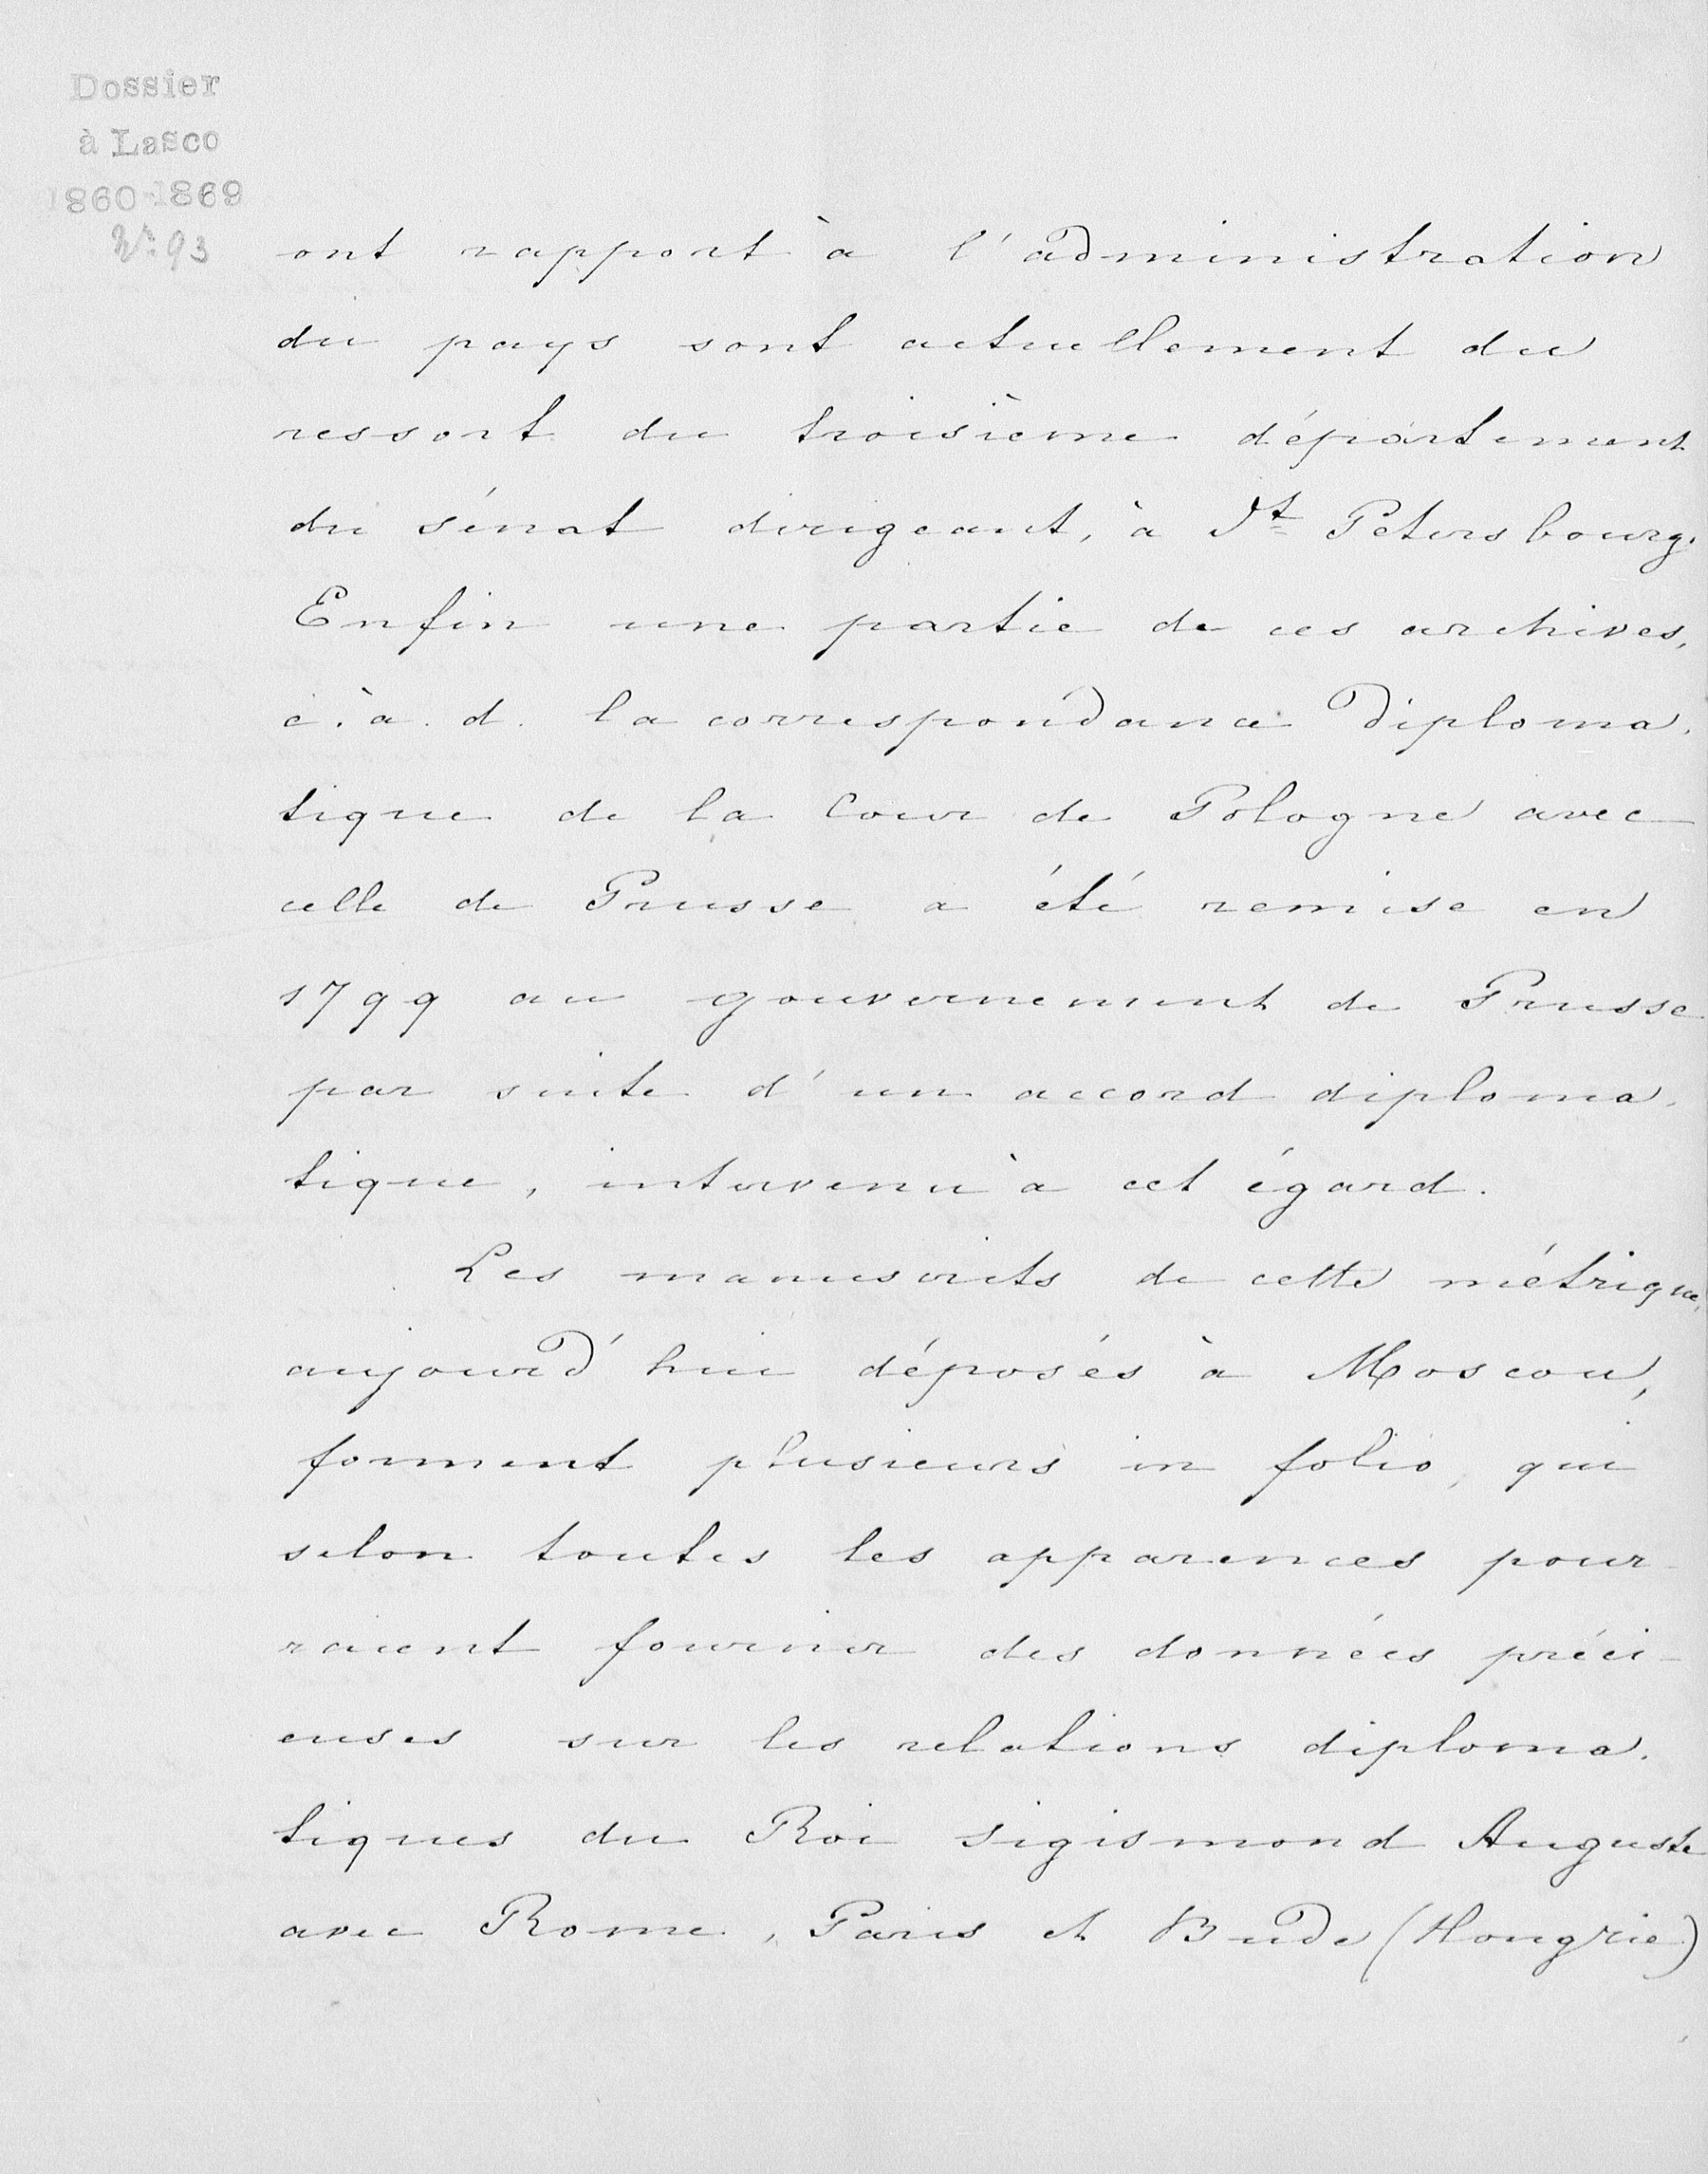 Dossier
à Lasco
1860-1869
N°: 93
ont rapport à l'administration
du pays sont actuellement du
ressort du troisième département
du sénat dirigeant, à St Petersbourg.
Enfin une partie de ces archives,
c. à. d. la correspondance diploma-
tique de la Cour de Pologne avec
celle de Prusse a été remise en
1799 au gouvernement de Prusse
par suite d'un accord diploma-
tique, intervenu à cet égard.
Les manuscrits de cette métrique,
aujourd'hui déposés à Moscou,
forment plusieurs in folio, qui
selon toutes les apparences pour-
raient fournir des données préci-
euses sur les relations diploma-
tiques du Roi Sigismond Auguste
avec Rome, Paris et Bude (Hongrie)